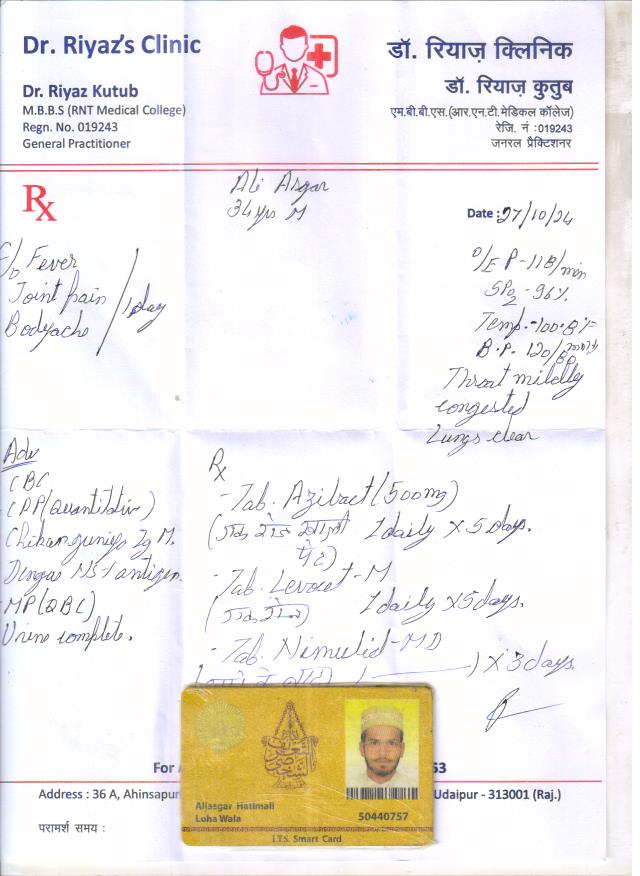 Dr. Riyaz's Clinic
Dr. Riyaz Kutub
M.B.B.S (RNT Medical College)
Regn. No. 019243
General Practitioner
डॉ. रियाज़ क्लिनिक
डॉ. रियाज़ कुतुब
एम.बी.बी.एस.(आर.एन.टी.मेडिकल कॉलेज)
रेजि. नं :019243
जनरल प्रैक्टिशनर
Rx
Ali Asgar
34 yrs M
Date : 27/10/24
C/o Fever
Joint pain
Bodyache
1 day
O/E P-118/min
SPO2 - 96%
Temp.-100.8°F
B.P. 120/80
Throat mildly
congested
Lungs clear
Adv
CBC
CRP(Quantitativ)
Chikungunya Ig M.
Dengue NS-1 antigen.
MP(QBC)
Urine complete.
Rx
- Tab. Azibact (500mg)
(एक रोज खाली 1 daily X 5 days.
पेट)
- Tab. Levocet-M
(एक रोज) 1 daily X 5 days.
- Tab. Nimulid-MD
) X 3 days.
For
53
Address : 36 A, Ahinsapur
Udaipur - 313001 (Raj.)
परामर्श समय :
Aliasgar Hatimali
Loha Wala
50440757
I.T.S. Smart Card